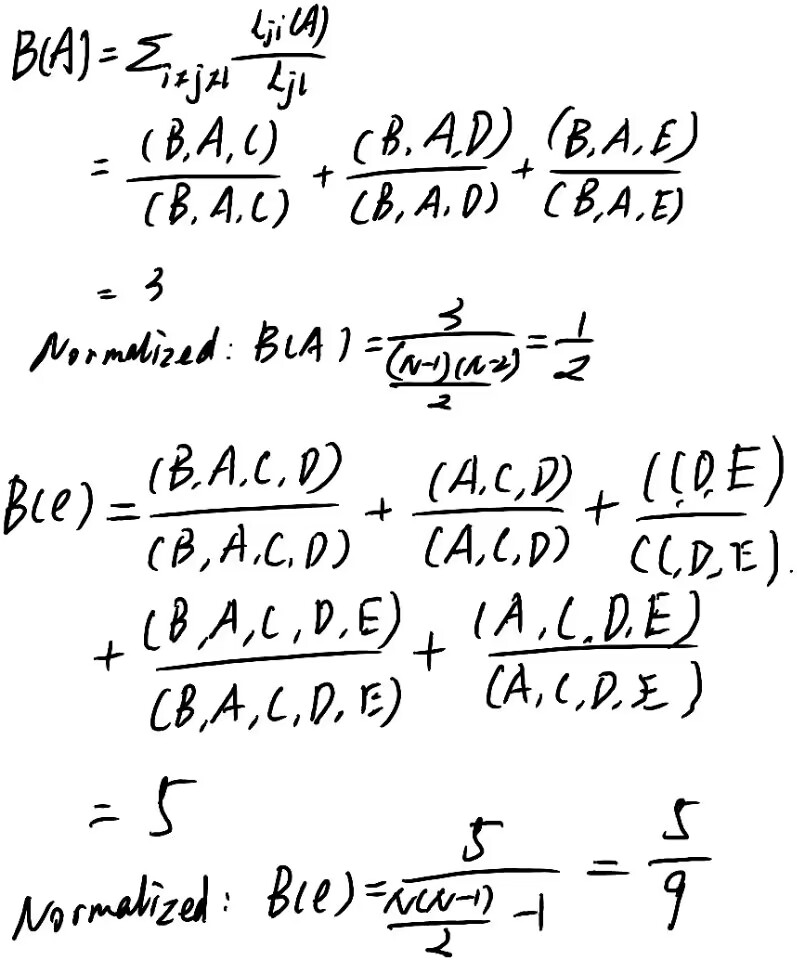 B(A) = ∑_{i≠j≠l} L_{ji}(A) / L_{jl}
= (B,A,C)/(B,A,C) + (B,A,D)/(B,A,D) + (B,A,E)/(B,A,E)
= 3
Normalized: B(A) = 3 / ((N-1)(N-2)/2) = 1/2
B(e) = (B,A,C,D)/(B,A,C,D) + (A,C,D)/(A,C,D) + (C,D,E)/(C,D,E).
+ (B,A,C,D,E)/(B,A,C,D,E) + (A,C,D,E)/(A,C,D,E)
= 5
Normalized: B(e) = 5 / (N(N-1)/2 - 1) = 5/9